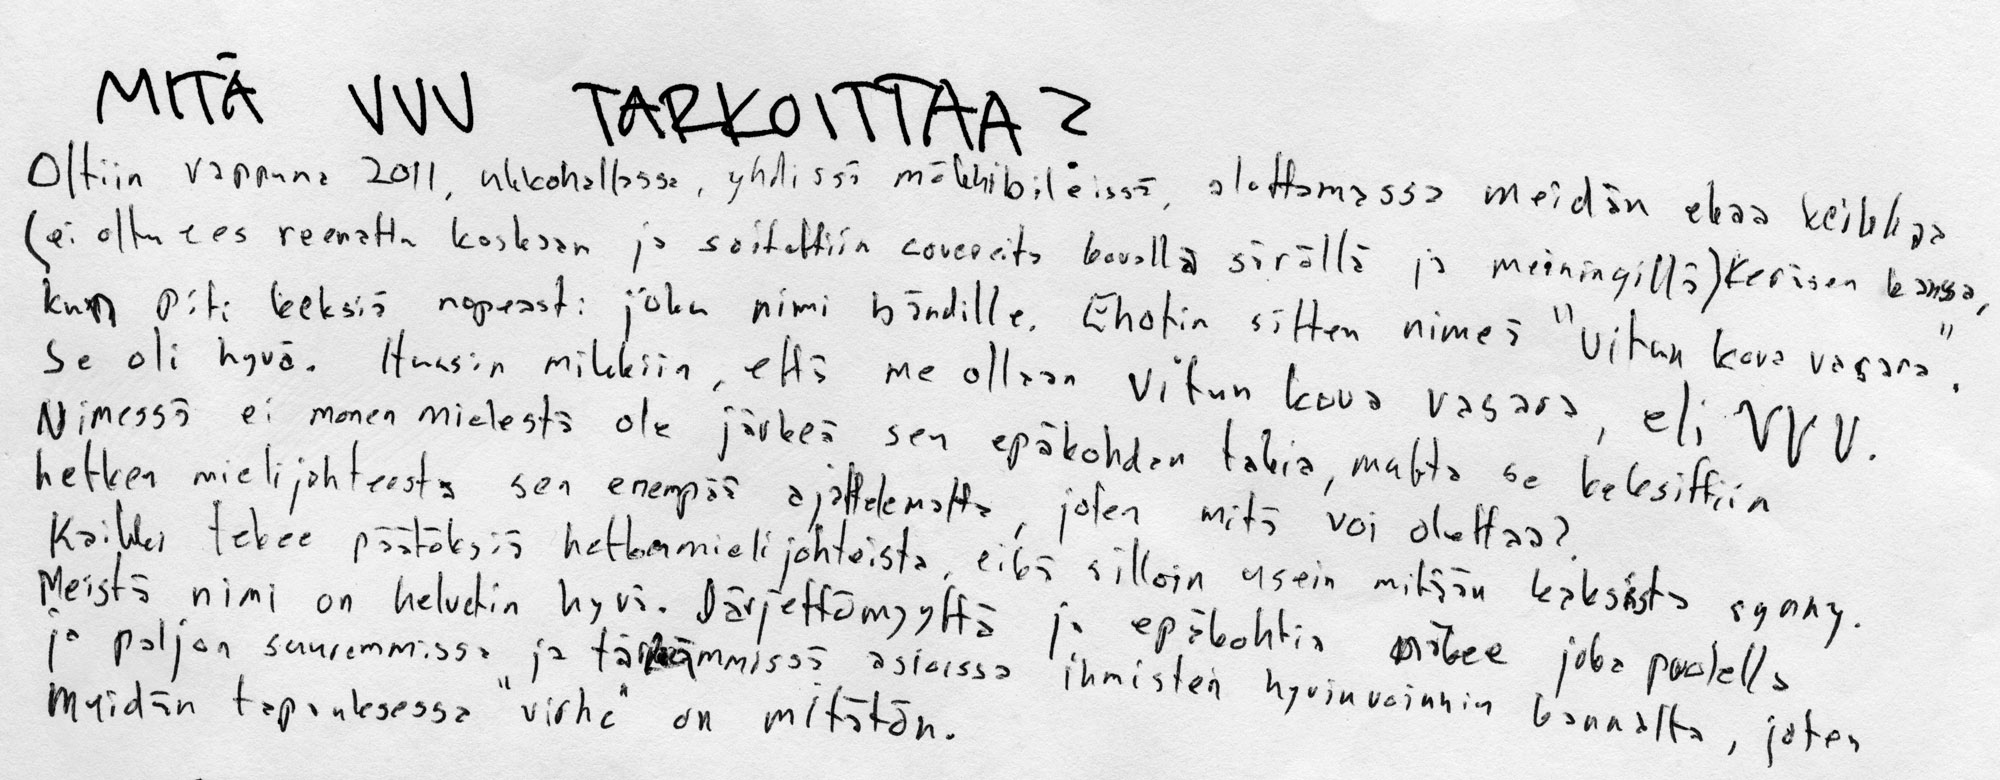 MITÄ VVV TARKOITTAA?
Oltiin vappuna 2011, ukkohallassa, yhdissä mökkibileissä, alottamassa meidän ekaa keikkaa
(ei oltu ees reenattu koskaan ja soitettiin covereita kovalla särällä ja meiningillä) Keräsen kanssa,
kun piti keksiä nopeasti joku nimi bändille. Ehotin sitten nimeä "Vitun kova vasara".
Se oli hyvä. Huusin mikkiin, että me ollaan vitun kova vasara, eli VVV.
Nimessä ei monen mielestä ole järkeä sen epäkohdan takia, mutta se keksittiin
hetken mielijohteesta sen enempää ajattelematta, joten mitä voi olettaa?
Kaikki tekee päätöksiä hetkenmielijohteista, eikä silloin usein mitään kaksista synny.
Meistä nimi on helvetin hyvä. Järjettömyyttä ja epäkohtia näkee joka puolella
ja paljon suuremmissa ja tärkeämmissä asioissa ihmisten hyvinvoinnin kannalta, joten
meidän tapauksessa "virhe" on mitätön.